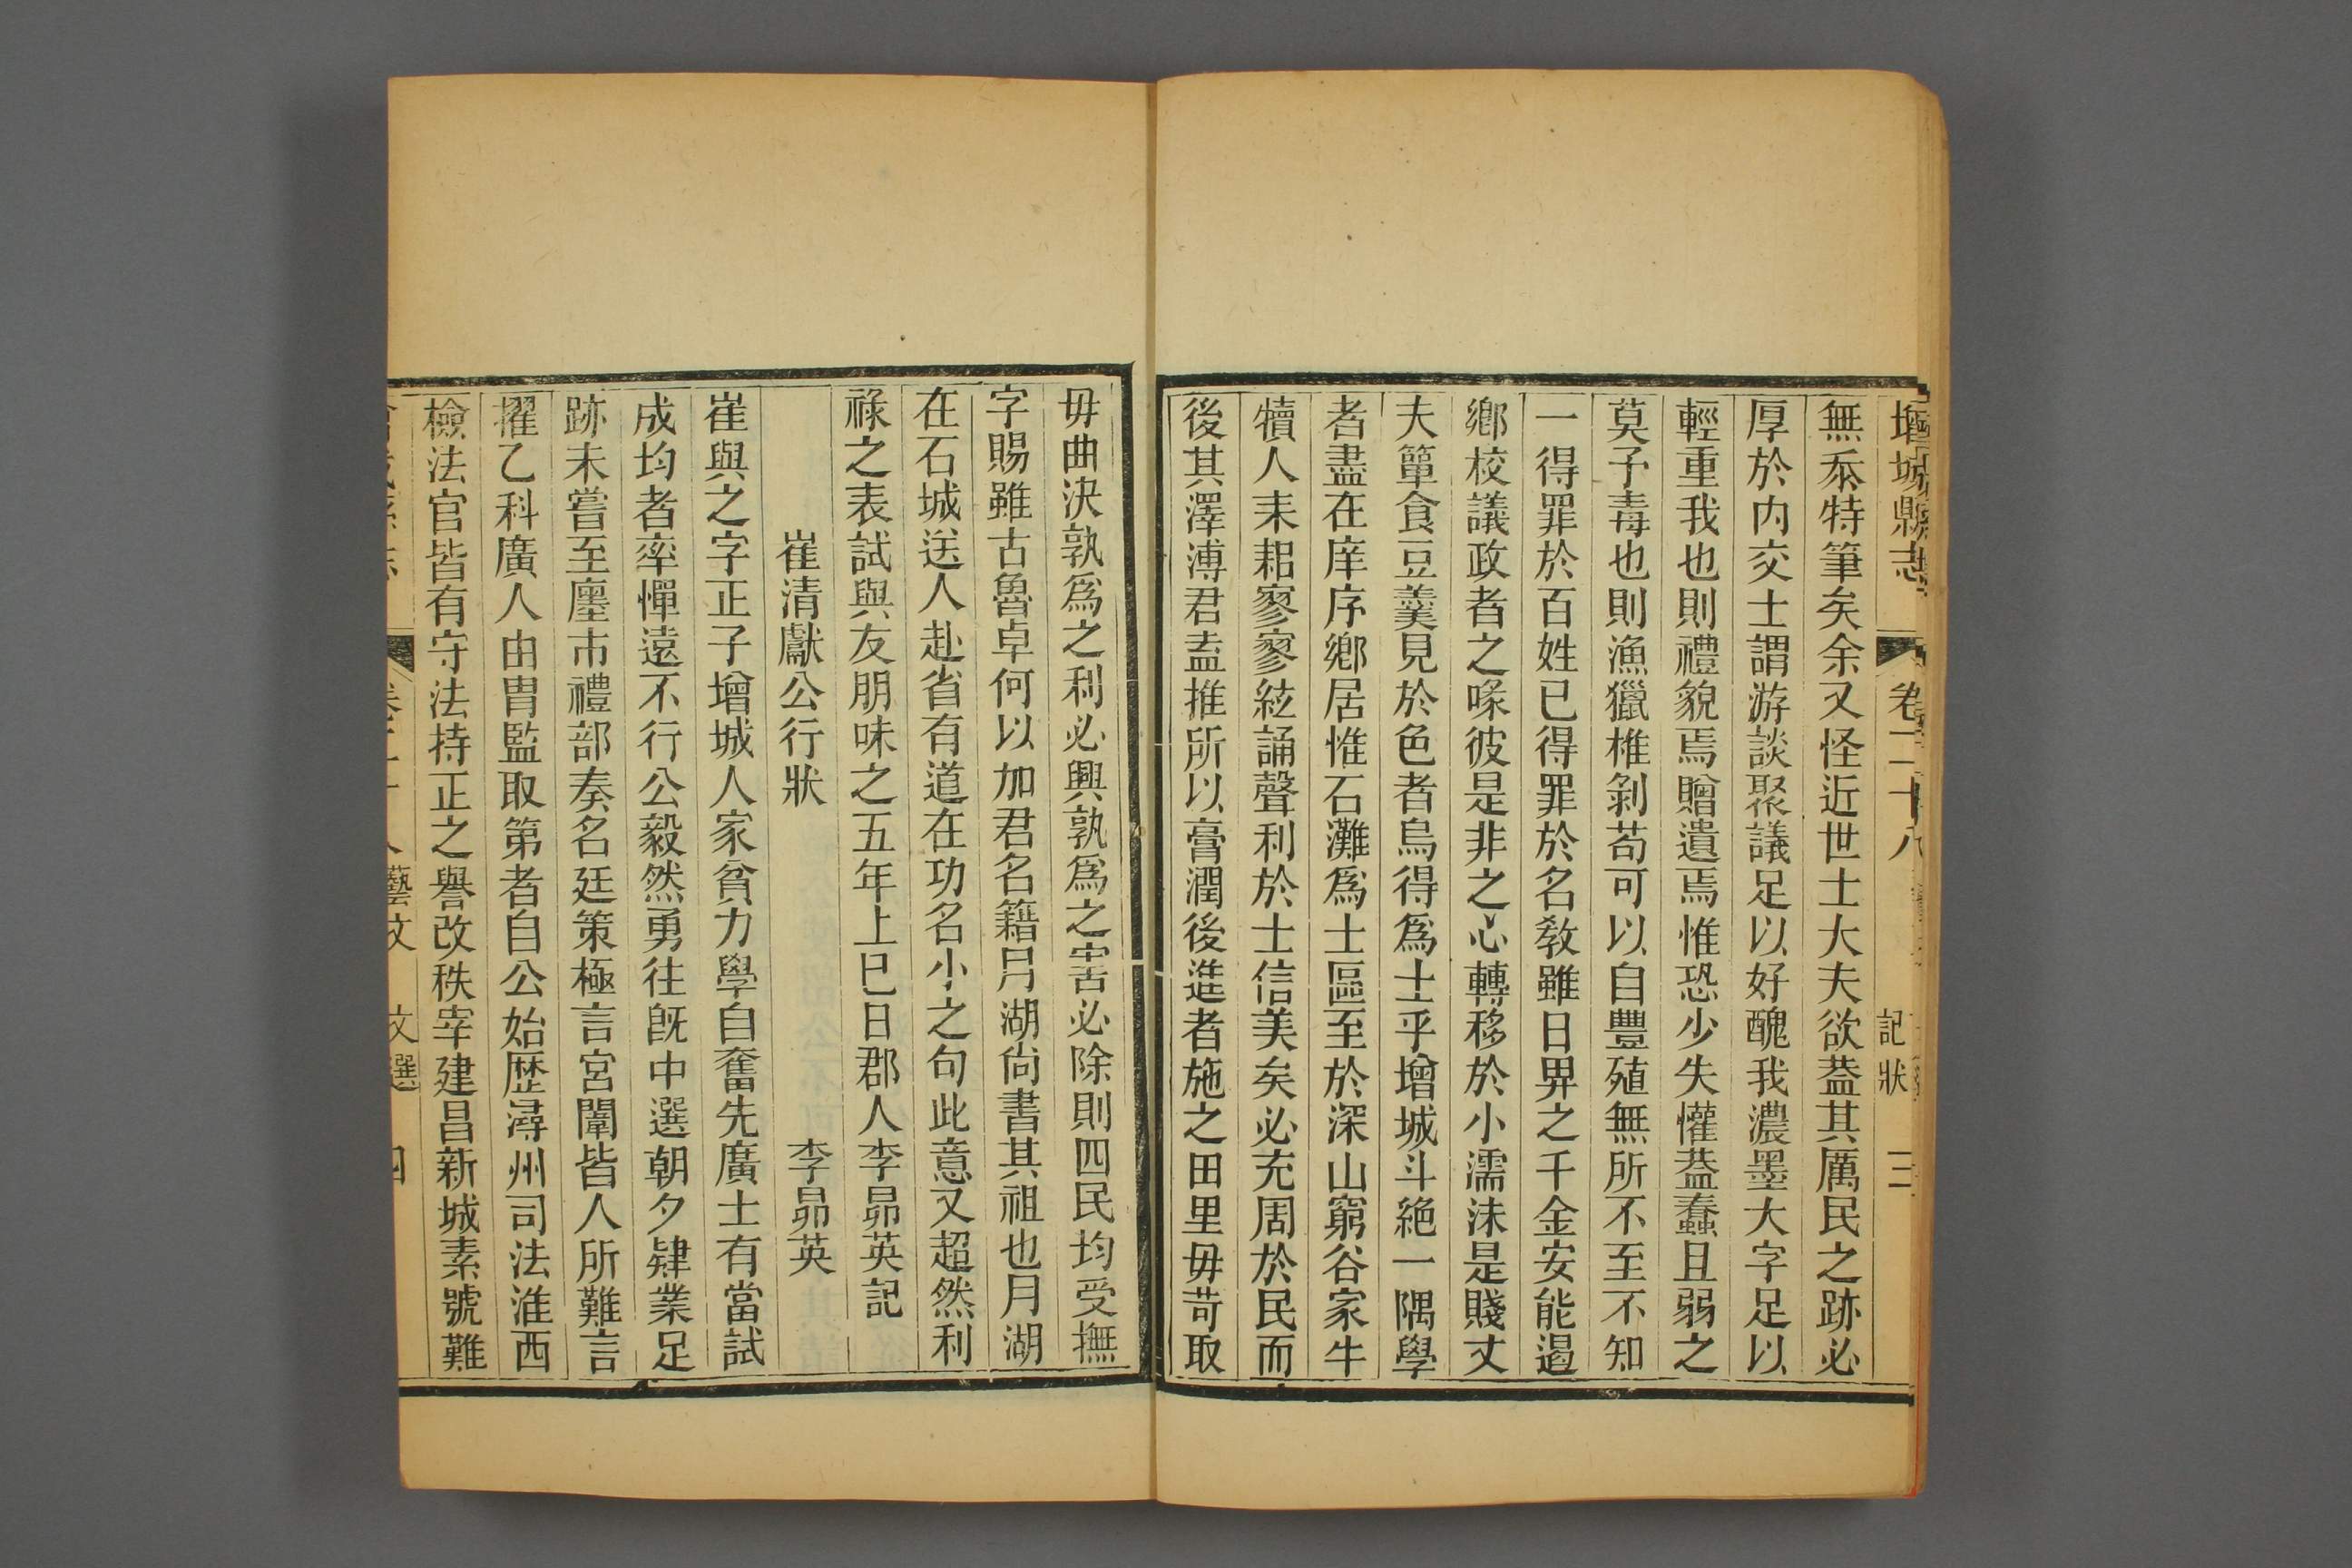 增城縣志 卷二十八 記狀 三
無忝特筆矣余又怪近世士大夫欲葢其厲民之跡必
厚於內交士謂游談聚議足以好醜我濃墨大字足以
輕重我也則禮貌焉贈遺焉惟恐少失懽葢蠢且弱之
莫予毒也則漁獵椎剝苟可以自豐殖無所不至不知
一得罪於百姓已得罪於名敎雖日畀之千金安能遏
鄉校議政者之喙彼是非之心轉移於小濡沫是賤丈
夫簞食豆羹見於色者烏得爲士乎增城斗絶一隅學
者盡在庠序鄉居惟石灘爲士區至於深山窮谷家牛
犢人耒耜寥寥絃誦聲利於士信美矣必充周於民而
後其澤溥君盍推所以膏潤後進者施之田里毋苛取
毋曲決孰爲之利必興孰爲之害必除則四民均受撫
字賜雖古魯卓何以加君名籍呂湖尙書其祖也月湖
在石城送人赴省有道在功名小之句此意又超然利
祿之表試與友朋味之五年上巳日郡人李昴英記
崔清獻公行狀 李昴英
崔與之字正子增城人家貧力學自奮先廣士有當試
成均者率憚遠不行公毅然勇往旣中選朝夕肄業足
跡未嘗至廛市禮部奏名廷策極言宮闈皆人所難言
擢乙科廣人由胄監取第者自公始歴潯州司法淮西
檢法官皆有守法持正之譽改秩宰建昌新城素號難
藝文 文選 四